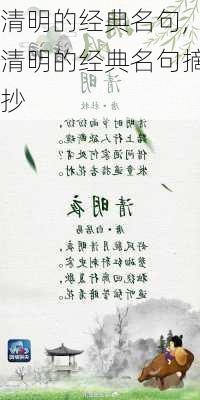 清明的经典名句,
清明的经典名句摘
抄
清明
唐·杜牧
清明时节雨纷纷，
路上行人欲断魂。
借问酒家何处有？
牧童遥指杏花村。
清明夜
唐·白居易
好风胧月清明夜，
碧砌红轩刺史家。
独绕回廊行复歇，
遥听弦管暗看花。